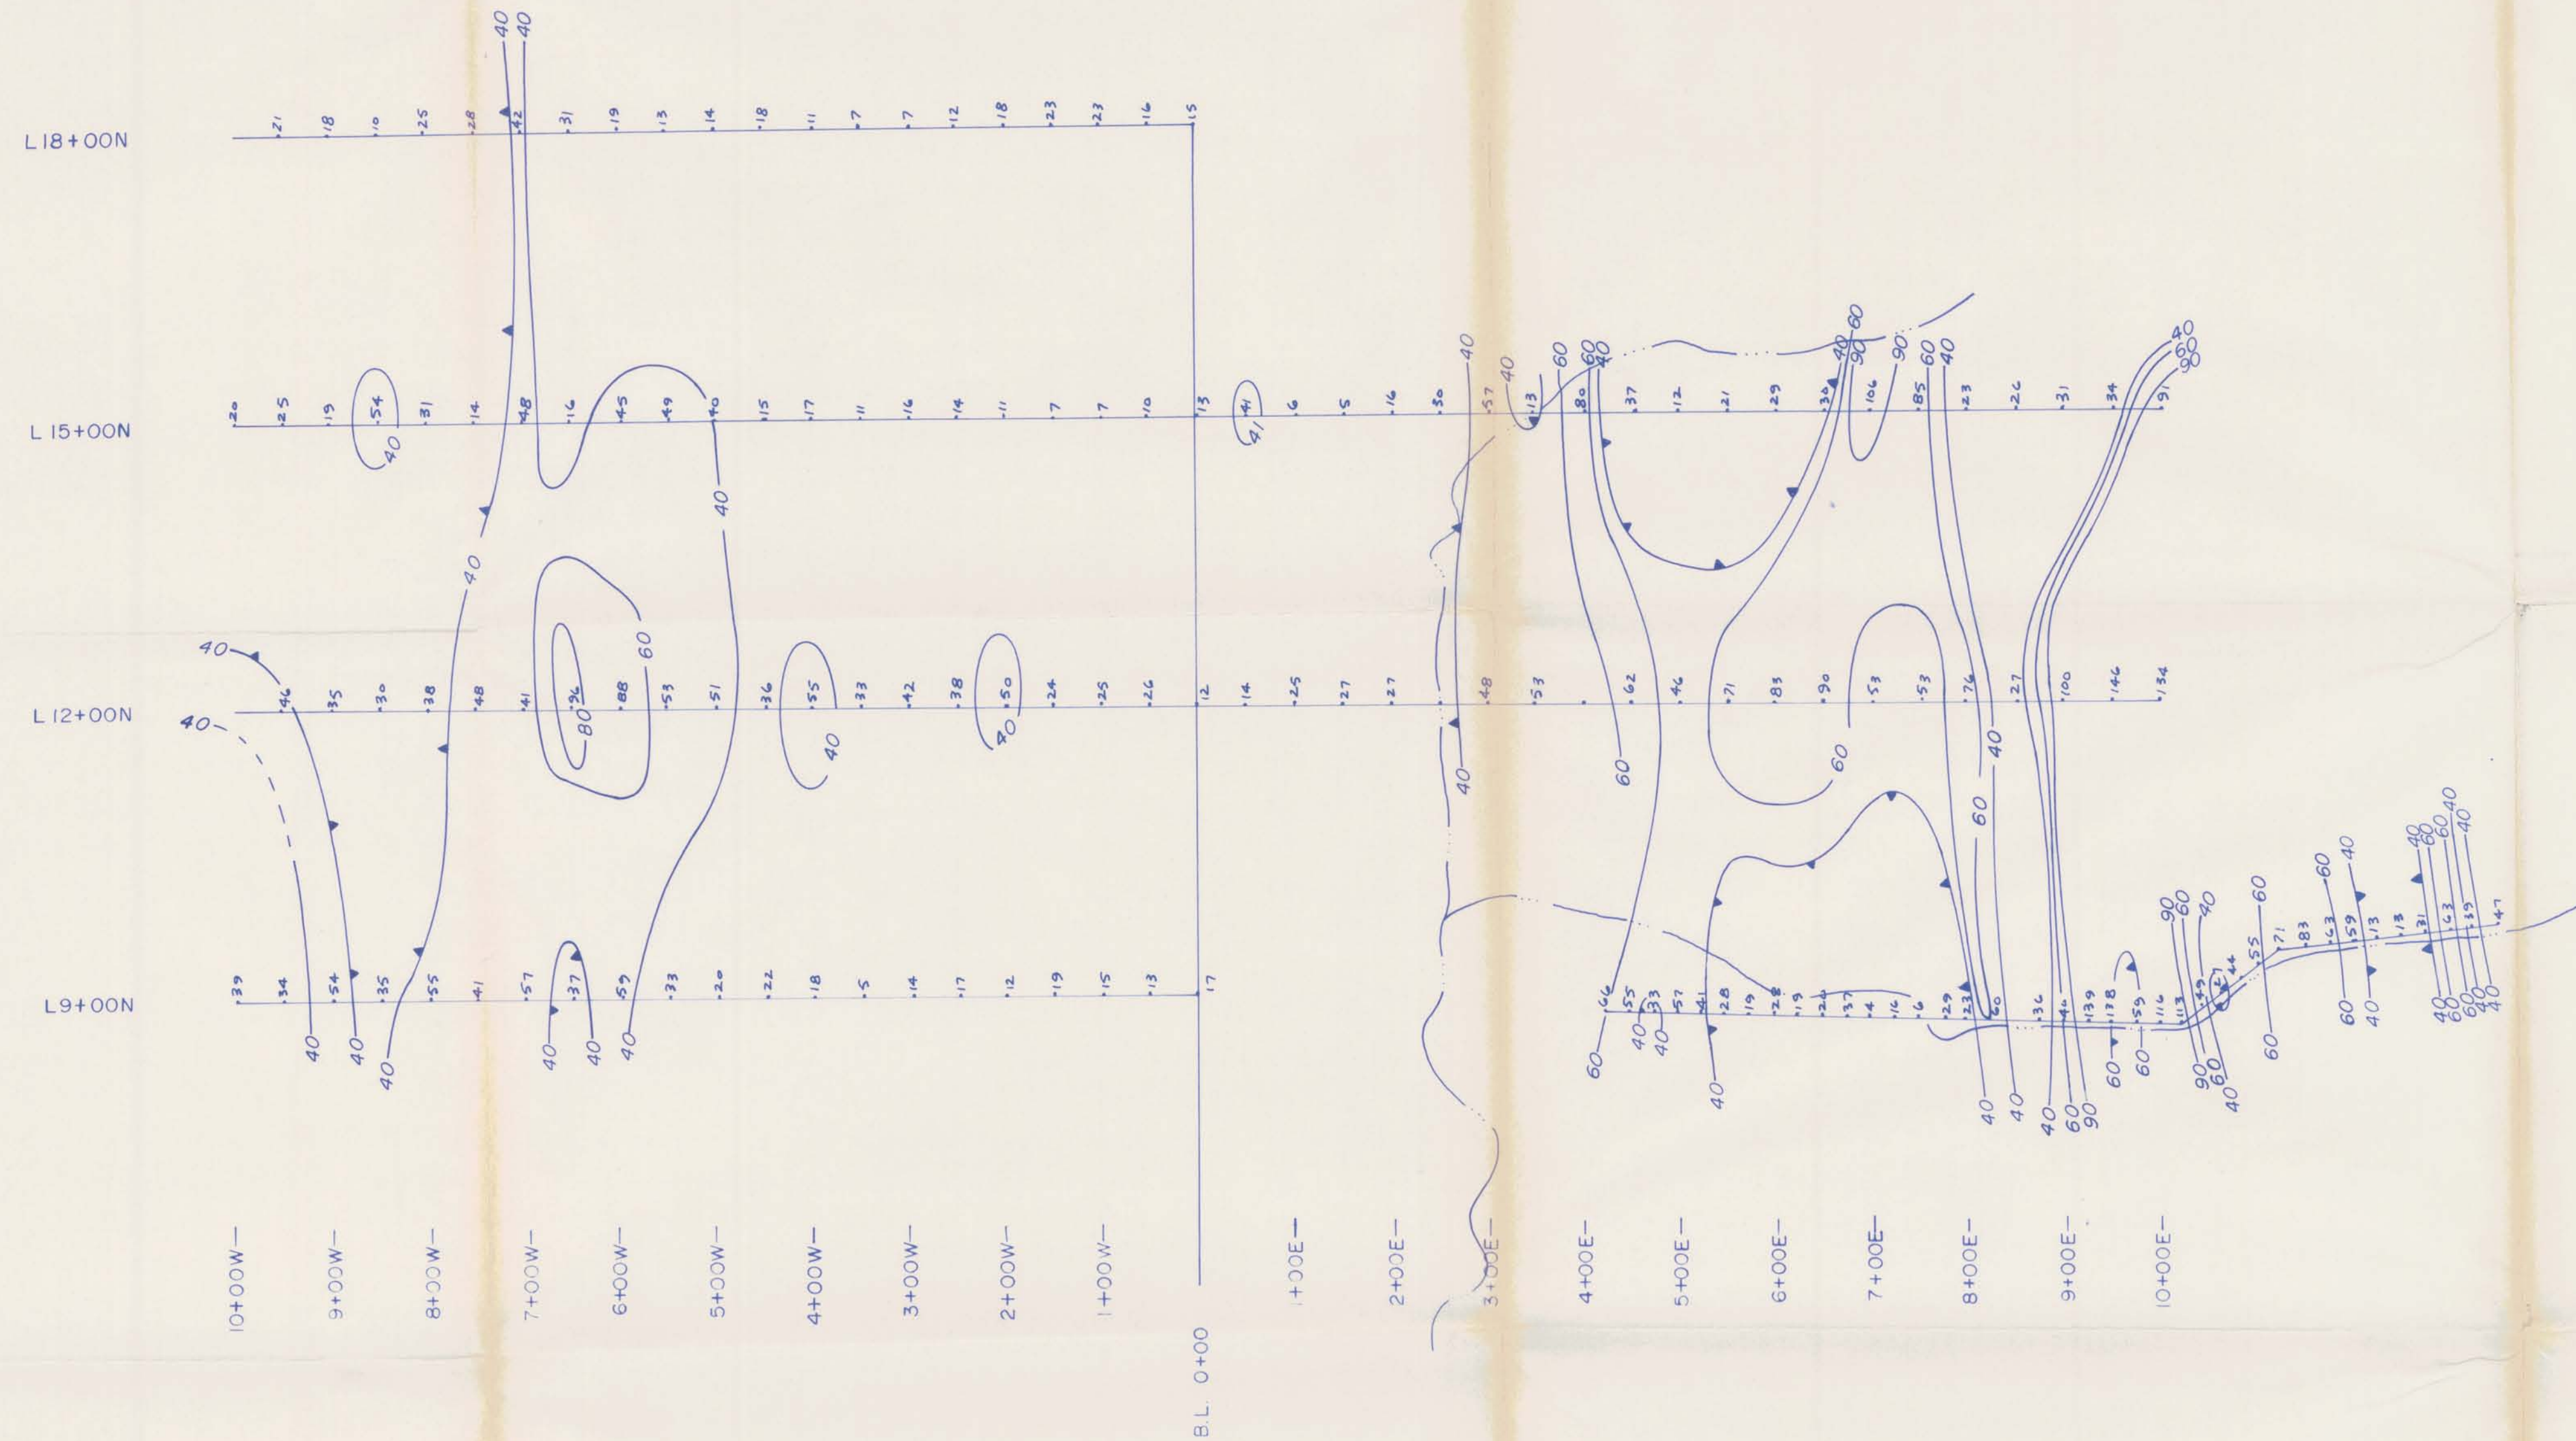 40 40
L18+00N
21 18 10 25 28 42 31 19 13 14 18 11 7 7 12 18 23 23 16 15
40 40 60 60 40 40 60 90 90 60 40 40 60 90
L 15+00N
20 25 19 54 31 14 48 16 45 49 40 15 17 11 16 14 11 7 7 10 13 41 6 5 16 30 57 13 80 37 12 21 29 30 106 85 23 26 31 34 91
40 41
40
40
40 60
L 12+00N
46 35 30 38 48 41 96 88 53 51 36 55 33 42 38 50 24 25 26 12 14 25 27 27 48 53 62 46 71 83 90 53 53 76 27 100 146 134
40 80 40 40 40 60 60 40
60
40 60 60 40
90 60 40 60 60 40
L9+00N
39 34 54 35 55 41 57 37 59 33 20 22 18 5 14 17 12 19 15 13 17
66 55 33 57 41 28 19 28 19 26 37 4 16 6 29 23 60 36 46 139 138 59 116 113 49 27 44 55 71 83 63 59 13 13 31 63 39 47
40 40 40 40 40 40
60 40 40 40 40 40 40 60 90 60 60 90 60 40 60 60 40 40 60 60 40 40
10+00W
9+00W
8+00W
7+00W
6+00W
5+00W
4+00W
3+00W
2+00W
1+00W
B.L. 0+00
1+00E
2+00E
3+00E
4+00E
5+00E
6+00E
7+00E
8+00E
9+00E
10+00E